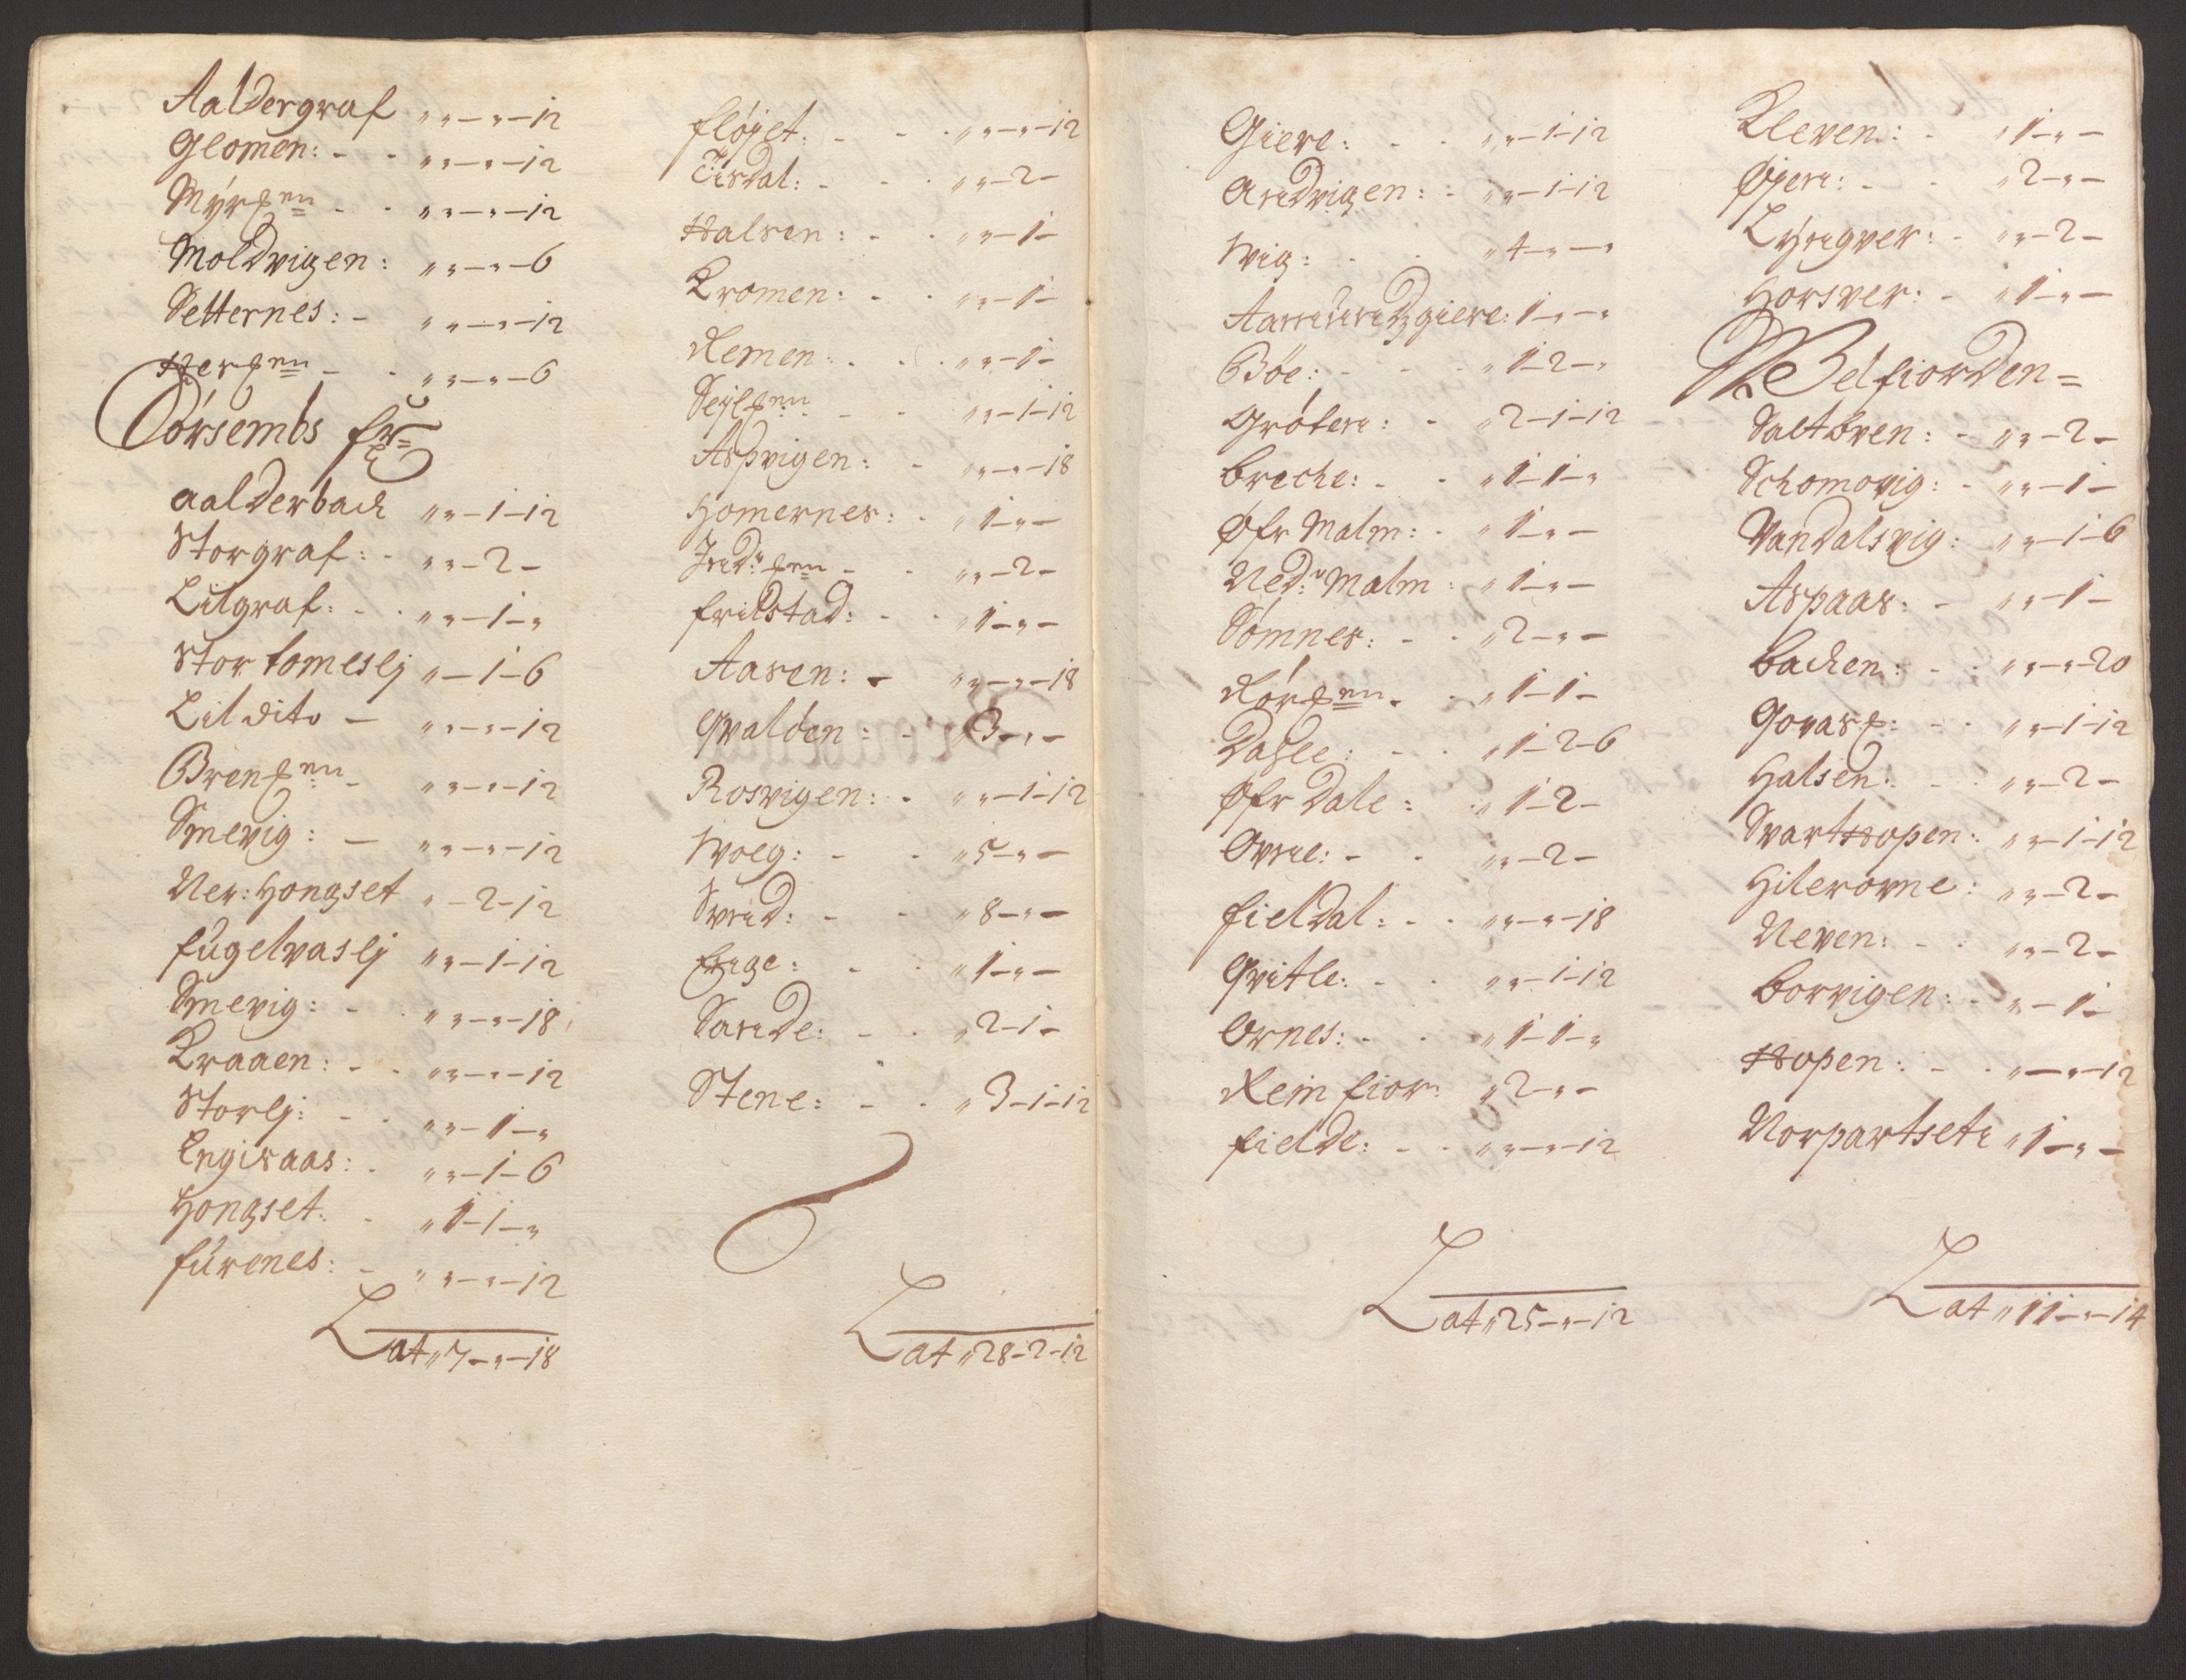 Aaldergraf „ „ - „ - 12
Glomen: - - „ „ - „ - 12
Mÿrßen - - „ „ - „ - 12
Moldvigen: „ „ - „ - 6
Setternes: - „ „ - „ - 12
Herßen - - „ „ - „ - 6
Sørsembs fr:
aalderbach „ „ - 1 - 12
Storgraf: - „ „ - 2 -
Lilgraf: - - „ „ - 1 - „
Stor tomeslj „ - 1 - 6
Lil dito - „ „ - „ - 12
Brenßen - „ „ - „ - 12
Smevig: - „ „ - „ - 12
Ner: Hongset „ - 2 - 12
fugelvaslj „ „ - 1 - 12
Smevig: - „ „ - „ - 18
Kraaen: - - „ „ - „ - 12
Storlj: - - „ „ - 1 - „
Engisaas: - „ „ - 1 - 6
Hongset: - „ 1 - 1 - „
furenes: - „ „ - „ - 12
Lat „ 7 - „ - 18
fløjet: - - „ „ - „ - 12
Tisdal: - - „ „ - 2 -
Halsen: - - „ „ - 1 -
Kromen: - - „ „ - 1 -
Remen: - - „ „ - 1 -
Sejlßen - - „ „ - 1 - 12
Aspvigen: - „ „ - „ - 18
Homernes: - „ 1 - „ -
Indr: ßen - - „ „ - 2 -
frilstad: - - „ 1 - „ -
Aasen: - „ „ - „ - 18
Qvalden: - „ 3 - „ -
Rosvigen: - „ „ - 1 - 12
Woeg: - - „ 5 - „ -
Svnd: - - „ 8 - „ -
Enge: - - „ 1 - „ -
Sande: - - „ 2 - 1 -
Stene: - - „ 3 - 1 - 12
Lat „ 28 - 2 - 12
Giere: - - „ „ - 1 - 12
Andvigen: - „ „ - 1 - 12
Wig: - - „ 4 - „ - „
Aammundzgiere: 1 - „ - „
Bøe: - - - „ 1 - 2 - „
Grøten: - „ 2 - 1 - 12
breche: - - „ 1 - 1 - „
Øfr Malm: - „ 1 - „ -
Nedr: Malm: „ 1 - „ -
Sømnes: - - „ 2 - „ -
Rørßen - - „ 1 - 1 -
Dahle: - - „ 1 - 2 - 6
Øfr Dale: „ 1 - 2 -
Ovne: - - „ „ - 2 -
fieldal: - - „ „ - „ - 18
Qvitle: - - „ „ - 1 - 12
Ornes: - - „ 1 - 1 - „
Rein fior: „ 2 - „ -
fielde: - - „ „ - „ - 12
Lat „ 25 - „ - 12
Kleven: - „ 1 - „ -
Øjen: - - „ 2 - „ -
Lÿngver: - „ „ - 2 -
Horsver: - „ 1 - „ -
Welfiorden =
Saltbven: - „ „ - 2 -
Schomovig: - „ „ - 1 -
Vandalsvig: „ „ - 1 - 6
Aspaas: - „ „ - 1 -
bachen: - - „ „ - „ - 20
Govasß: - - „ „ - 1 - 12
Halsen: - - „ „ - 2 -
Svarthopen: „ „ - 1 - 12
Hilerovne: „ „ - 2 -
Neven: - - „ „ - 2 -
borvigen: - „ „ - 1 -
Hopen: - - „ - „ - 12
Norpartsete „ 1 - „ -
Lat „ 11 - „ - 14